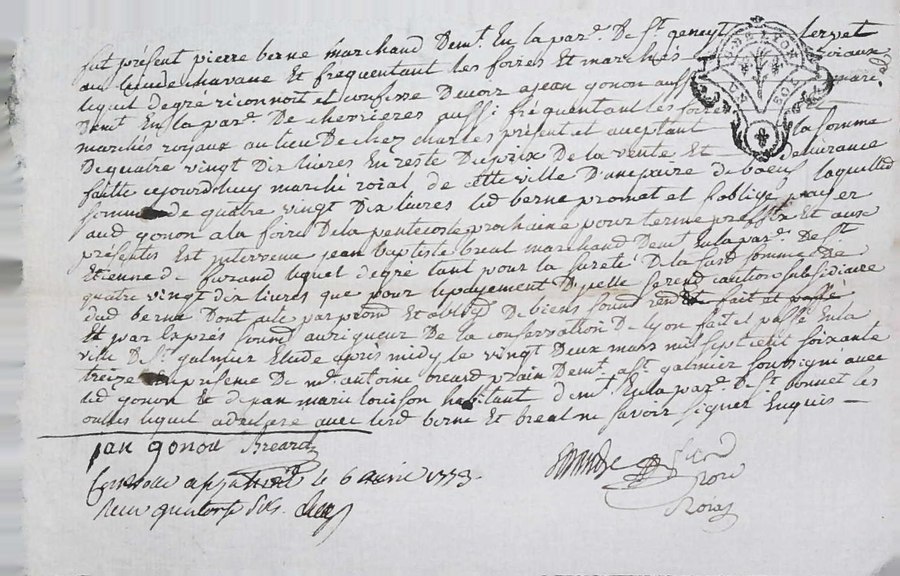 fut présent pierre berne marchand demt. En la par. De St. geneyt lervet
au lieu de chavane Et fréquentant les foires Et marchés roiaux
lequel degré reconnoit et confesse Devoir a jean gonon aussi mar.
Demt. En la par. De chevrieres aussi fréquentant les foires
marchés royaux au lieu De chez charles présent et aceptant la somme
De quatre vingt Dix livres En reste Du prix De la vente Et Delivrance
faitte cejourdhuy marché roial de cette ville D'une paire de boeufs laquelle d
somme de quatre vingt Dix livres led berne promet et s'oblige payer
aud gonon a la foire De la pentecoste prochaine pour terme prefix Et aux
présentes Est intervenu jean baptiste breat marchand Demt. En la par. De St.
Etienne De furand lequel degré tant pour la sureté De la susd somme De
quatre vingt dix livres que pour le payement D'icelle se rend caution subsidiaire
dud berne Dont acte par prom Et oblig De biens soum ren et fait et passé
Et par Exprès soum au rigueur De la conservation De lyon fait et passé En la
ville De St. galmier Etude après midy le vingt Deux mars mil sept cent soixante
treize En présence De me. antoine breard prain Demt. a St. galmier soussigné avec
led gonon Et De jean marie louison habitant demt. En la par. De St. bonnet les
oulles lequel avec lesd berne Et breat ne savoir signer Enquis
jan gonon Breard
Controllé a St. le 6 avril 1773.
Reçu quatorze sols